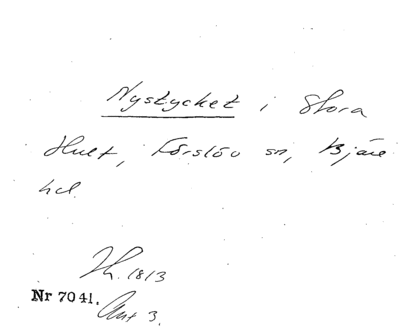 Nystycket i Stora
Hult, Förslöv sn, Bjäre
hd.
Th. 1813
Nr 7041. Ant 3.